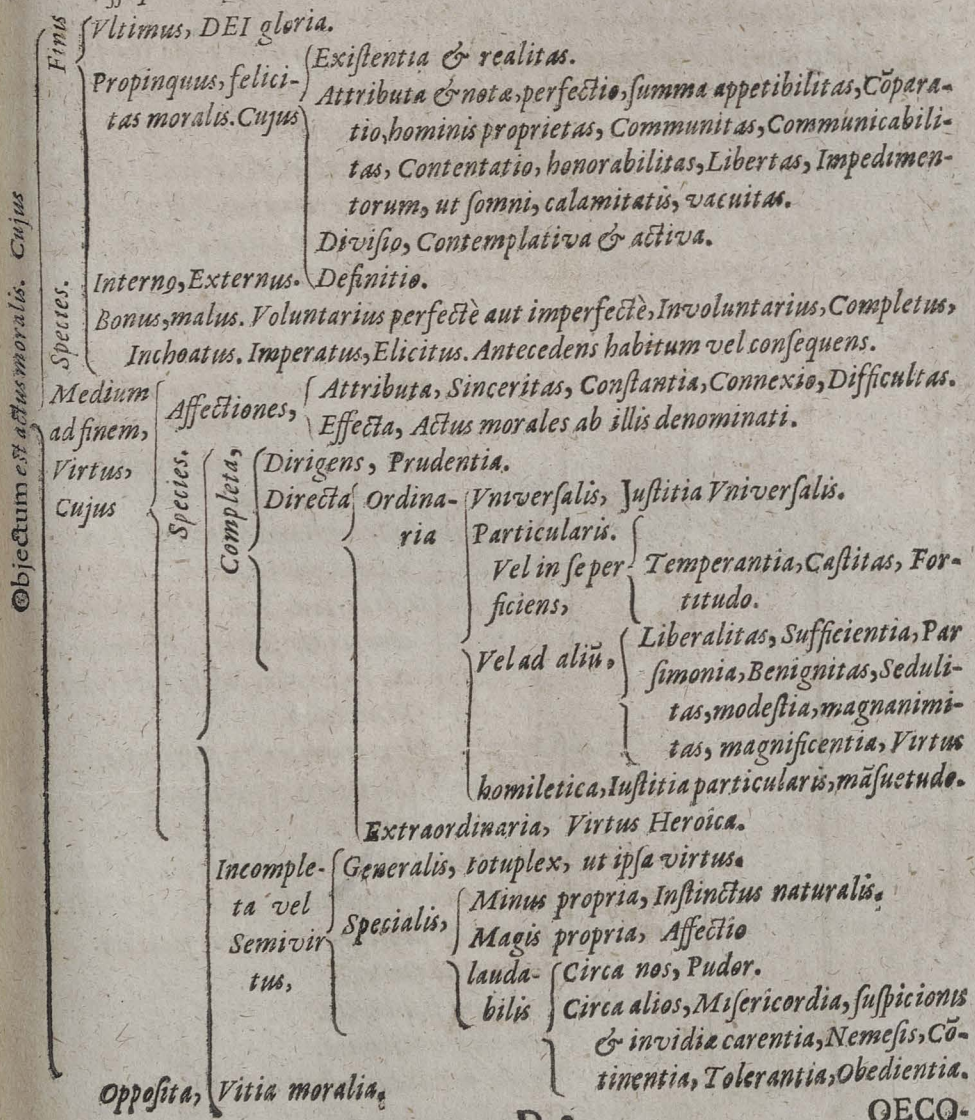 Objectum est actus moralis. Cujus
Finis
Vltimus, DEI gloria.
Propinquus, felici-
tas moralis. Cujus
Existentia & realitas.
Attributa & notæ, perfectio, summa appetibilitas, Cõpara-
tio, hominis proprietas, Communitas, Communicabili-
tas, Contentatio, honorabilitas, Libertas, Impedimen-
torum, ut somni, calamitatis, vacuitas.
Divisio, Contemplativa & activa.
Definitio.
Species.
Internꝰ, Externus.
Bonus, malus. Voluntarius perfectè aut imperfectè, Involuntarius, Completus,
Inchoatus. Imperatus, Elicitus. Antecedens habitum vel consequens.
Medium
ad finem,
Virtus,
Cujus
Affectiones,
Attributa, Sinceritas, Constantia, Connexio, Difficultas.
Effecta, Actus morales ab illis denominati.
Species.
Completa,
Dirigens, Prudentia.
Directa
Ordina-
ria
Vniversalis, Justitia Vniversalis.
Particularis.
Vel in se per-
ficiens,
Temperantia, Castitas, For-
titudo.
Vel ad aliũ,
Liberalitas, Sufficientia, Par
simonia, Benignitas, Seduli-
tas, modestia, magnanimi-
tas, magnificentia, Virtus
homiletica, Iustitia particularis, mãsuetudo.
Extraordinaria, Virtus Heroica.
Incomple-
ta vel
Semivir
tus,
Generalis, totuplex, ut ipsa virtus.
Specialis,
Minus propria, Instinctus naturalis.
Magis propria, Affectio
lauda-
bilis
Circa nos, Pudor.
Circa alios, Misericordia, suspicionis
& invidiæ carentia, Nemesis, Cõ-
tinentia, Tolerantia, Obedientia.
Opposita, Vitia moralia.
OECO-